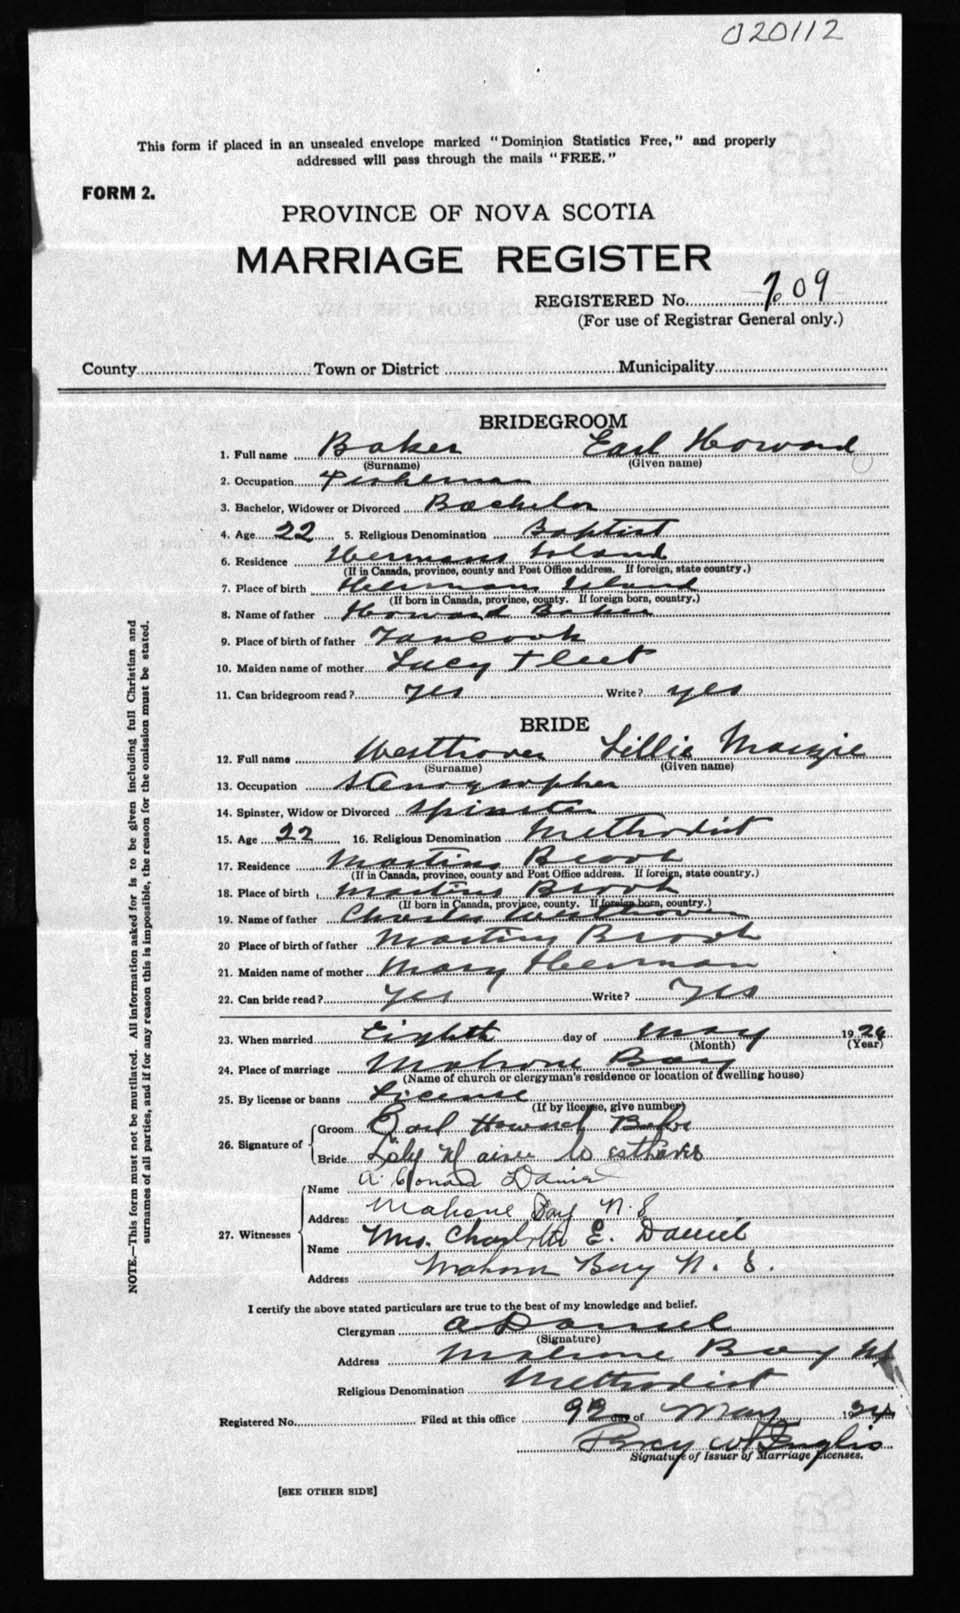 020112
This form if placed in an unsealed envelope marked "Dominion Statistics Free," and properly
addressed will pass through the mails "FREE."
FORM 2.
PROVINCE OF NOVA SCOTIA
MARRIAGE REGISTER
REGISTERED No. 709
(For use of Registrar General only.)
County Town or District Municipality
BRIDEGROOM
1. Full name Baker Earl Howard
(Surname) (Given name)
2. Occupation Fisherman
3. Bachelor, Widower or Divorced Bachelor
4. Age 22 5. Religious Denomination Baptist
6. Residence Hermans Island
(If in Canada, province, county and Post Office address. If foreign, state country.)
7. Place of birth Herman Island
(If born in Canada, province, county. If foreign born, country.)
8. Name of father Howard Baker
9. Place of birth of father Tancook
10. Maiden name of mother Lucy Fleet
11. Can bridegroom read? Yes Write? yes
BRIDE
12. Full name Westhover Lillie
(Surname) (Given name)
13. Occupation Stenographer
14. Spinster, Widow or Divorced Spinster
15. Age 22 16. Religious Denomination Methodist
17. Residence Martins Brook
(If in Canada, province, county and Post Office address. If foreign, state country.)
18. Place of birth Martins Brook
(If born in Canada, province, county. If foreign born, country.)
19. Name of father Charles Westhover
20 Place of birth of father Martins Brook
21. Maiden name of mother Mary Herman
22. Can bride read? Yes Write? Yes
23. When married Eighth day of May 192
(Month) (Year)
24. Place of marriage Mahone Bay
(Name of church or clergyman's residence or location of dwelling house)
25. By license or banns License
(If by license, give number)
26. Signature of Groom Earl Howard Baker
Bride
27. Witnesses Name
Address Mahone Bay N.S
Name Mrs. Charlotte E. Daniel
Address Mahone Bay N. S.
I certify the above stated particulars are true to the best of my knowledge and belief.
Clergyman A Daniel
(Signature)
Address Mahone Bay NS
Religious Denomination Methodist
Registered No. Filed at this office day of May 1924
Percy W Inglis
Signature of Issuer of Marriage Licenses.
[SEE OTHER SIDE]
NOTE.—This form must not be mutilated. All information asked for is to be given including full Christian and
surnames of all parties, and if for any reason this is impossible, the reason for the omission must be stated.